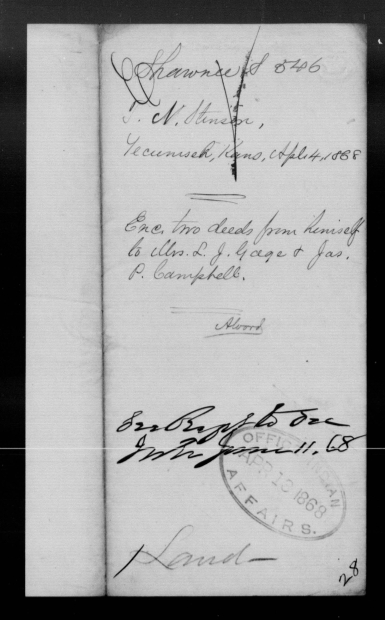 Shawnee S 546
T. N. Stinson,
Tecumseh, Kans, Apl. 4, 1868
Enc. two deeds from himself
to Mrs. L. J. Gage & Jas.
P. Campbell.
Alvord
See Rept to Sec
Int. June 11. 68
OFFICE INDIAN
APR 13 1868
AFFAIRS.
Land
28